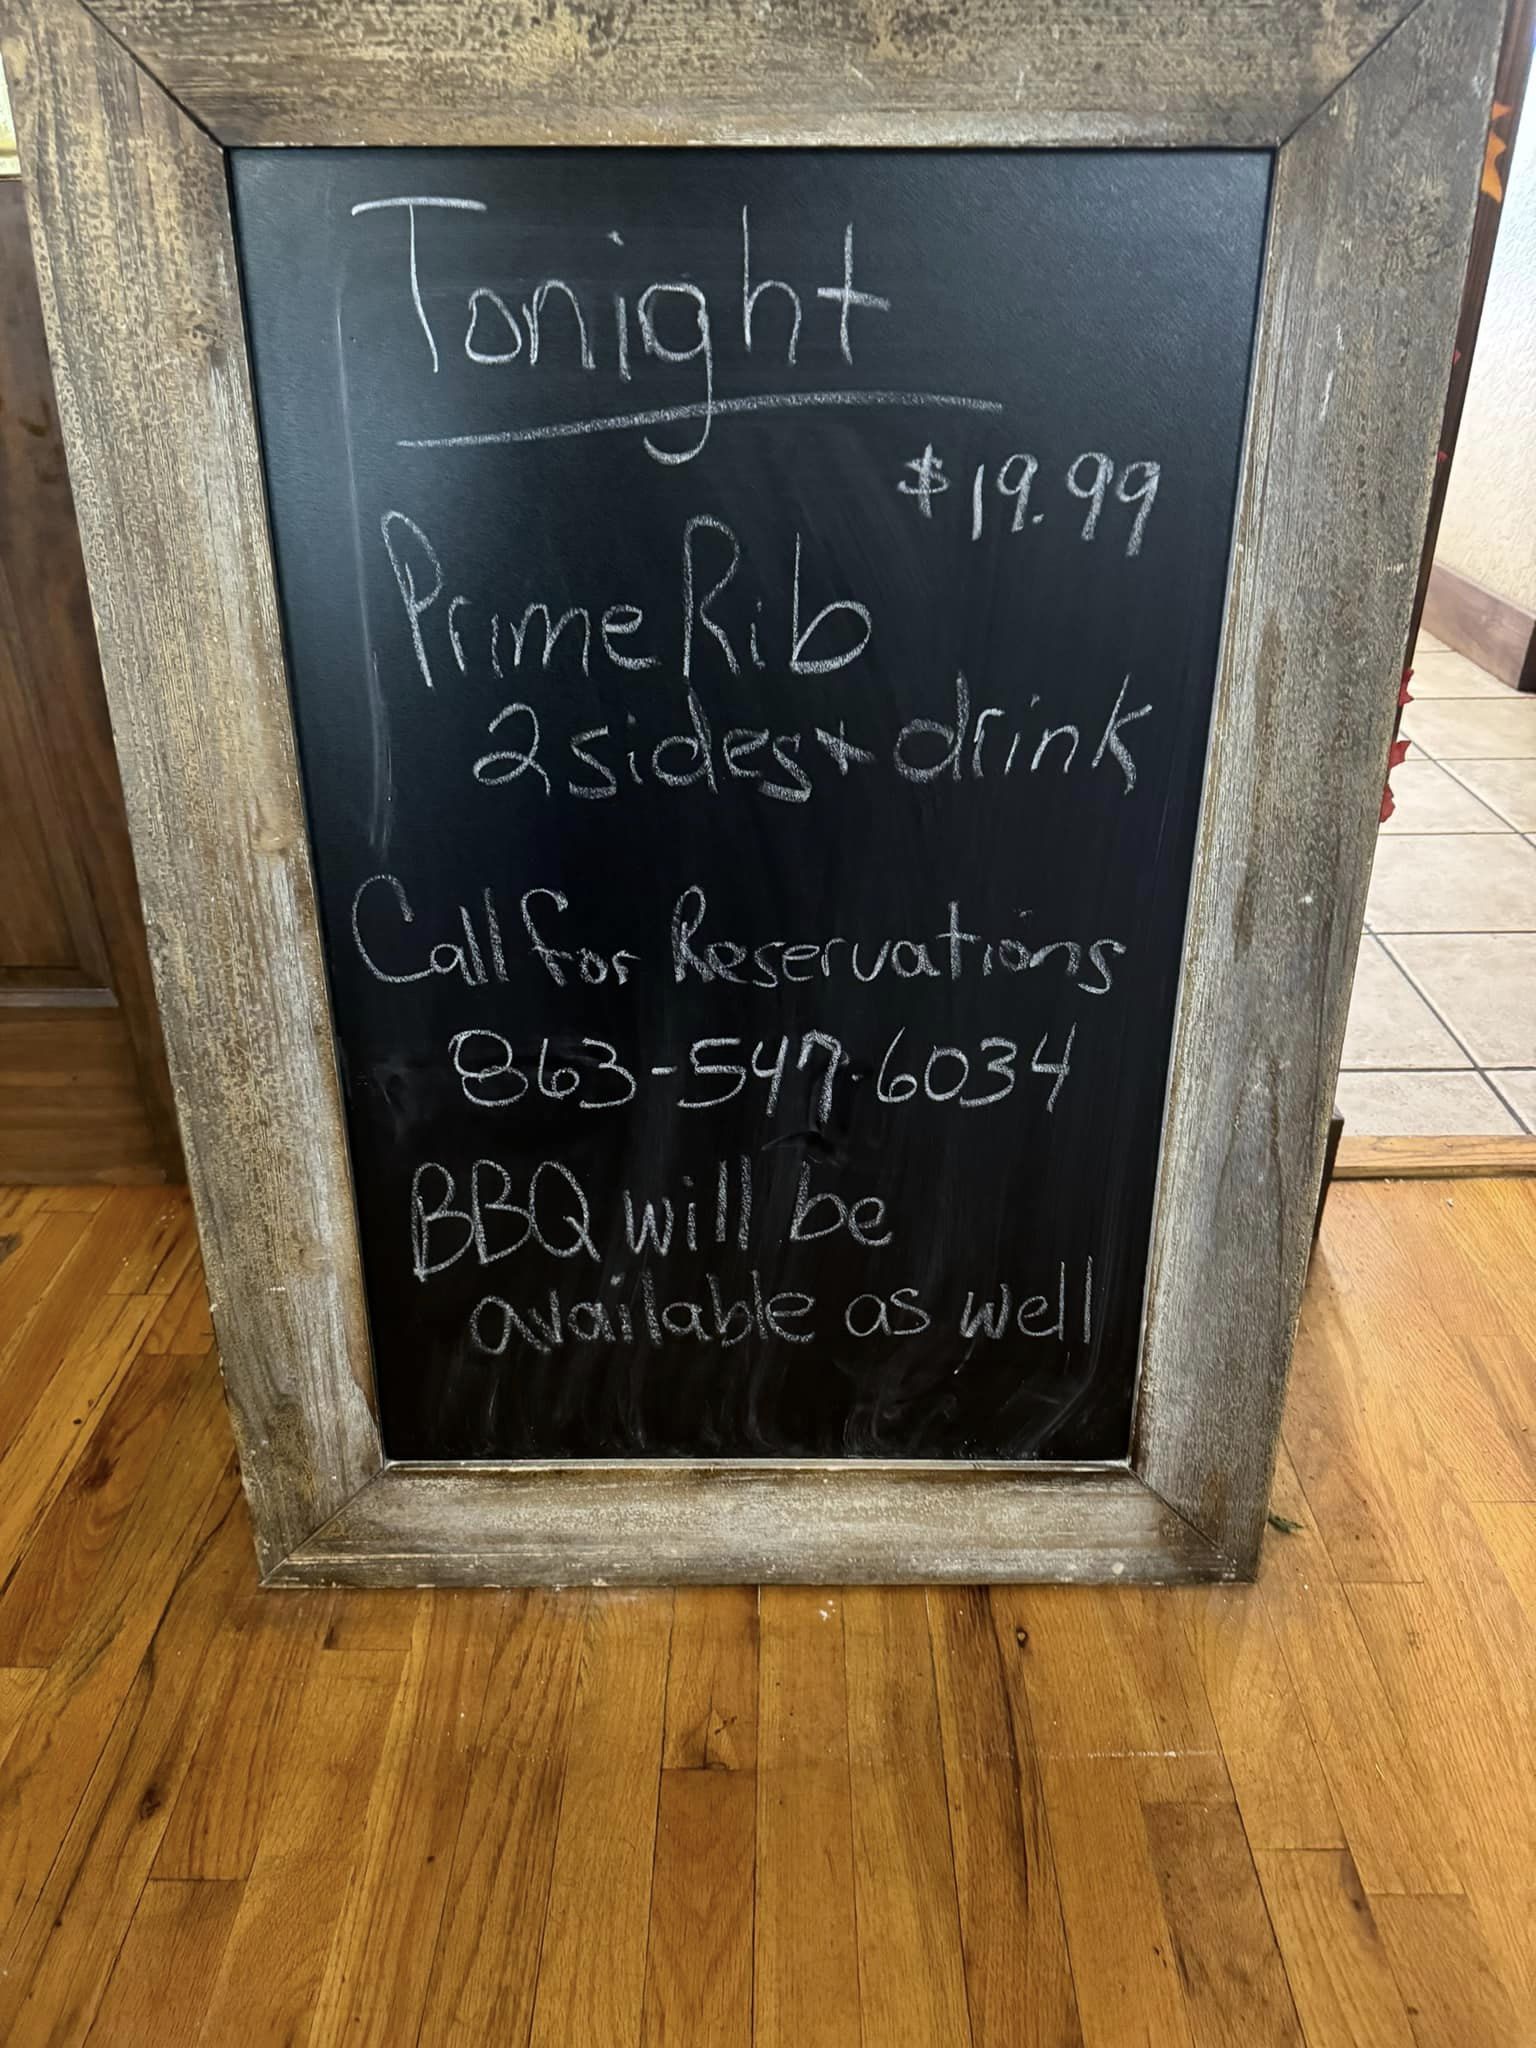 Tonight
$19.99
Prime Rib
2 sides + drink
Call for Reservations
863-547-6034
BBQ will be
available as well